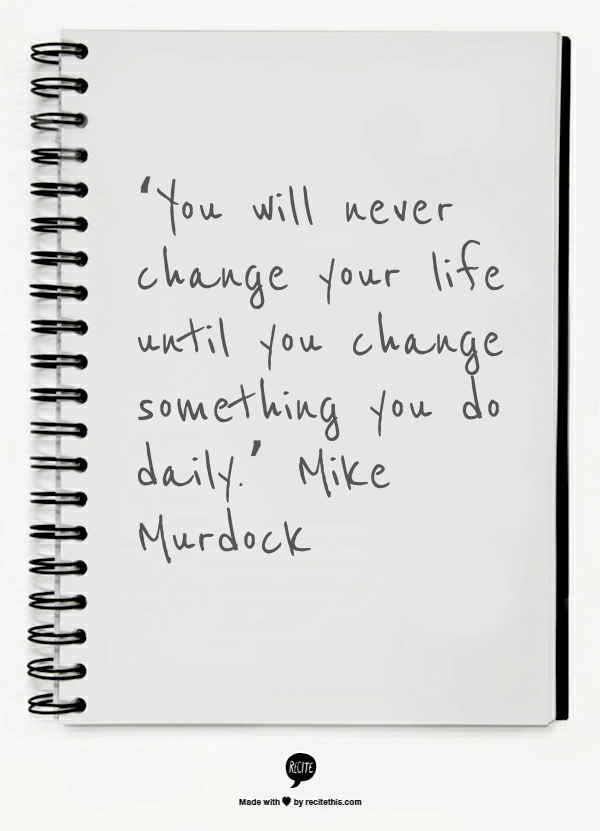 ‘You will never
change your life
until you change
something you do
daily.’ Mike
Murdock
RECITE
Made with ♥ by recitethis.com